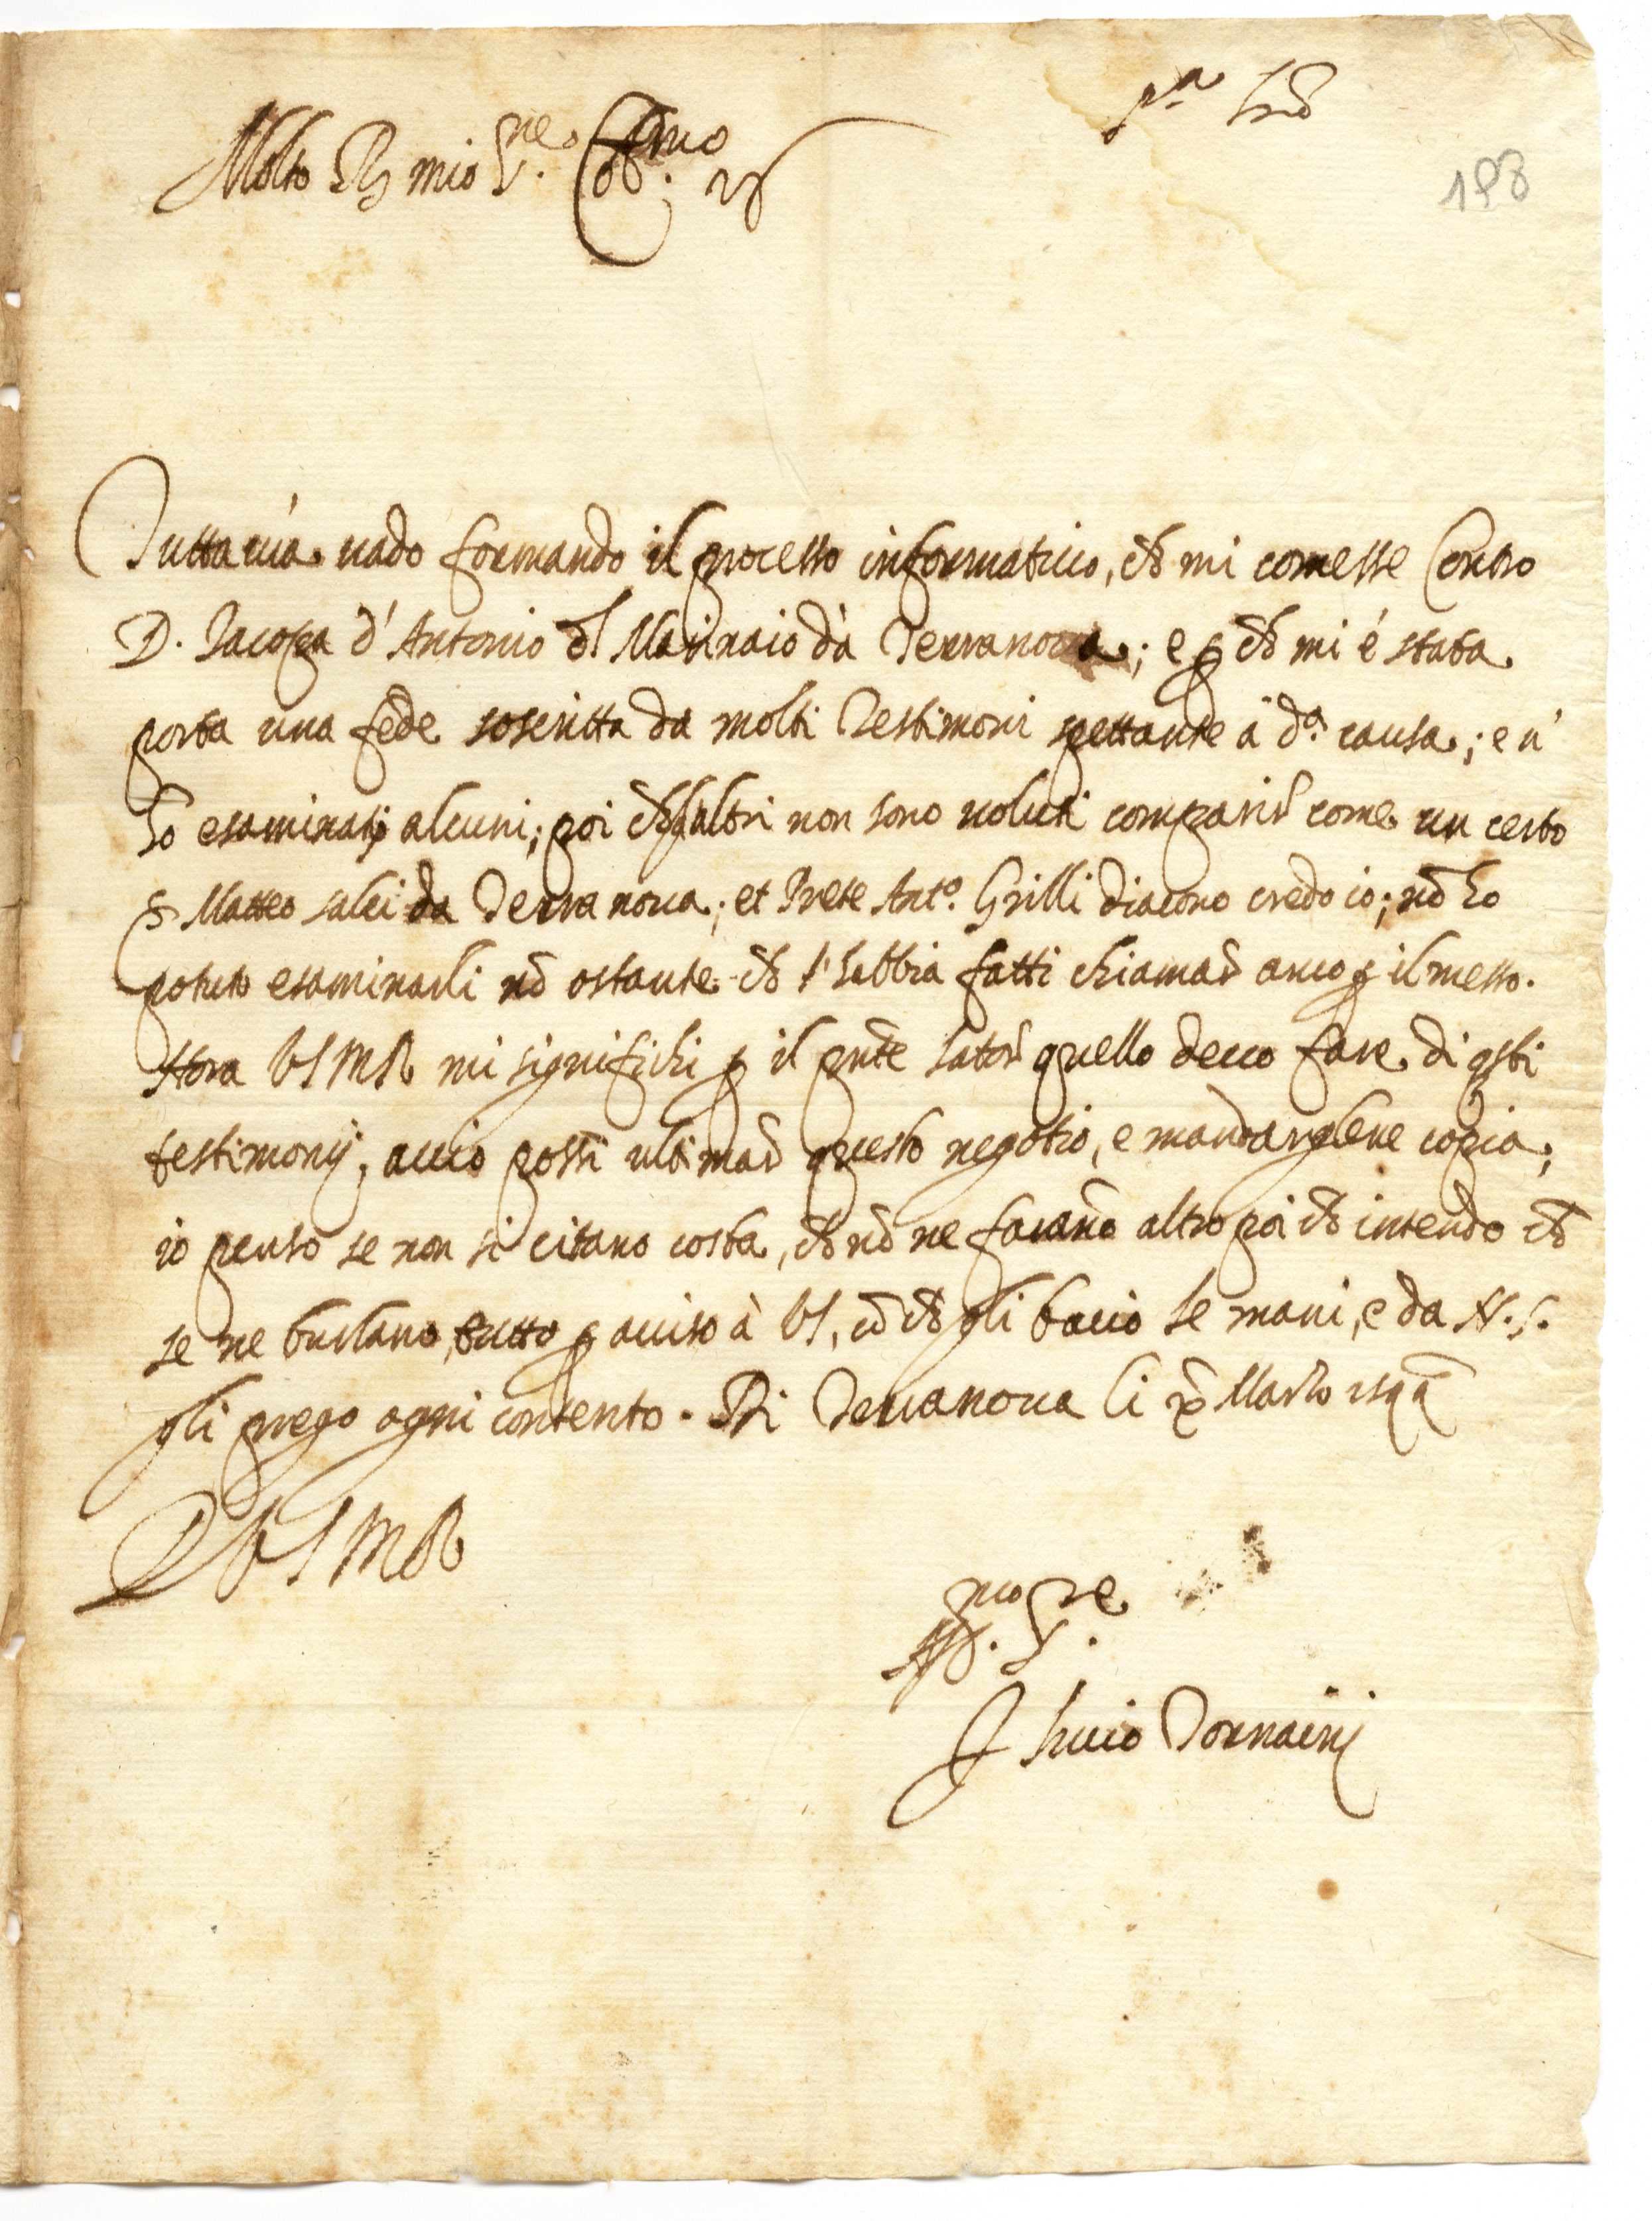 198
Molto R. mio S.re
Tuttavia vado formando il processo informativo, ch mi comesse Contro
D. Iacopa d'Antonio dl Marinaio dà Terranova; e p ch mi é stata
porta una fede soscritta da molti Testimoni spettante á d.a causa; e n'
ho esaminati alcuni; poi ch gl'altri non sono voluti comparir come un certo
S. Matteo salci da Terra nova; et Prete Ant.o Grilli diacono credo io; nō ho
potuto esaminarli nō ostante ch l'habbia fatti chiamar anco p il messo.
Hora VSMR mi significhi p il pnte lator quello devo fare di qsti
testimonij, accio possi ultimar questo negotio, e mandarglene copia;
io penso se non si citano costa, ch nō ne farāno altro poi ch intendo ch
se ne burlano, tutto p aviso à VS, cō ch gli bacio le mani, e da N.S.
gli prego ogni contento. Di Terranova li Marzo
D VSMR
Aff.mo S.re
Tornaini